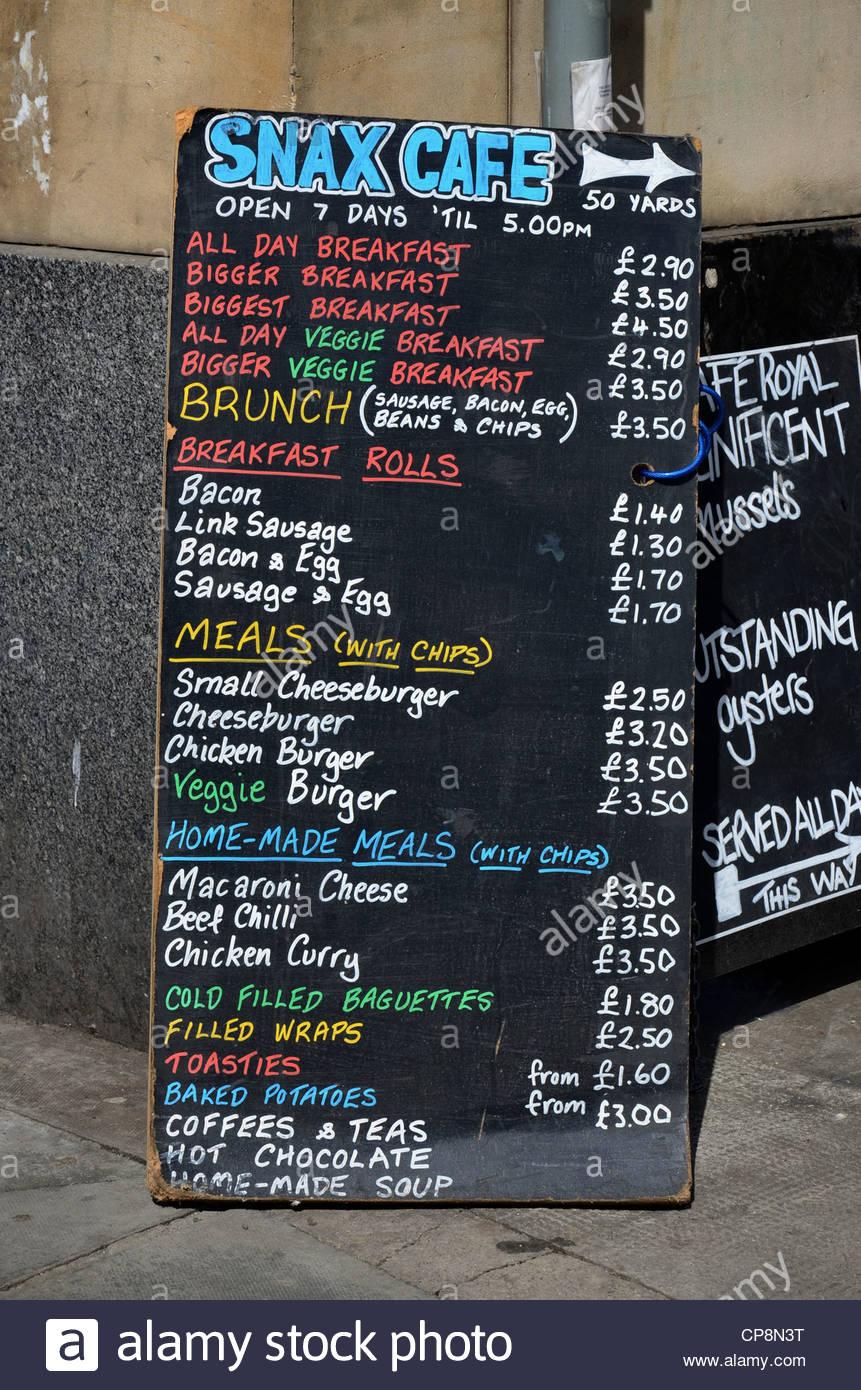 SNAX CAFE
50 YARDS
OPEN 7 DAYS 'TIL 5.00PM
ALL DAY BREAKFAST £2.90
BIGGER BREAKFAST £3.50
BIGGEST BREAKFAST £4.50
ALL DAY VEGGIE BREAKFAST £2.90
BIGGER VEGGIE BREAKFAST £3.50
BRUNCH (SAUSAGE, BACON, EGG, BEANS & CHIPS) £3.50
BREAKFAST ROLLS
Bacon £1.40
Link Sausage £1.30
Bacon & Egg £1.70
Sausage & Egg £1.70
MEALS (WITH CHIPS)
Small Cheeseburger £2.50
Cheeseburger £3.20
Chicken Burger £3.50
Veggie Burger £3.50
HOME-MADE MEALS (WITH CHIPS)
Macaroni Cheese £3.50
Beef Chilli £3.50
Chicken Curry £3.50
COLD FILLED BAGUETTES £1.80
FILLED WRAPS £2.50
TOASTIES from £1.60
BAKED POTATOES from £3.00
COFFEES & TEAS
HOT CHOCOLATE
HOME-MADE SOUP
AFÉ ROYAL
NIFICENT
mussels
UTSTANDING
oysters
SERVED ALL DAY
THIS WAY
a alamy stock photo
CP8N3T
www.alamy.com